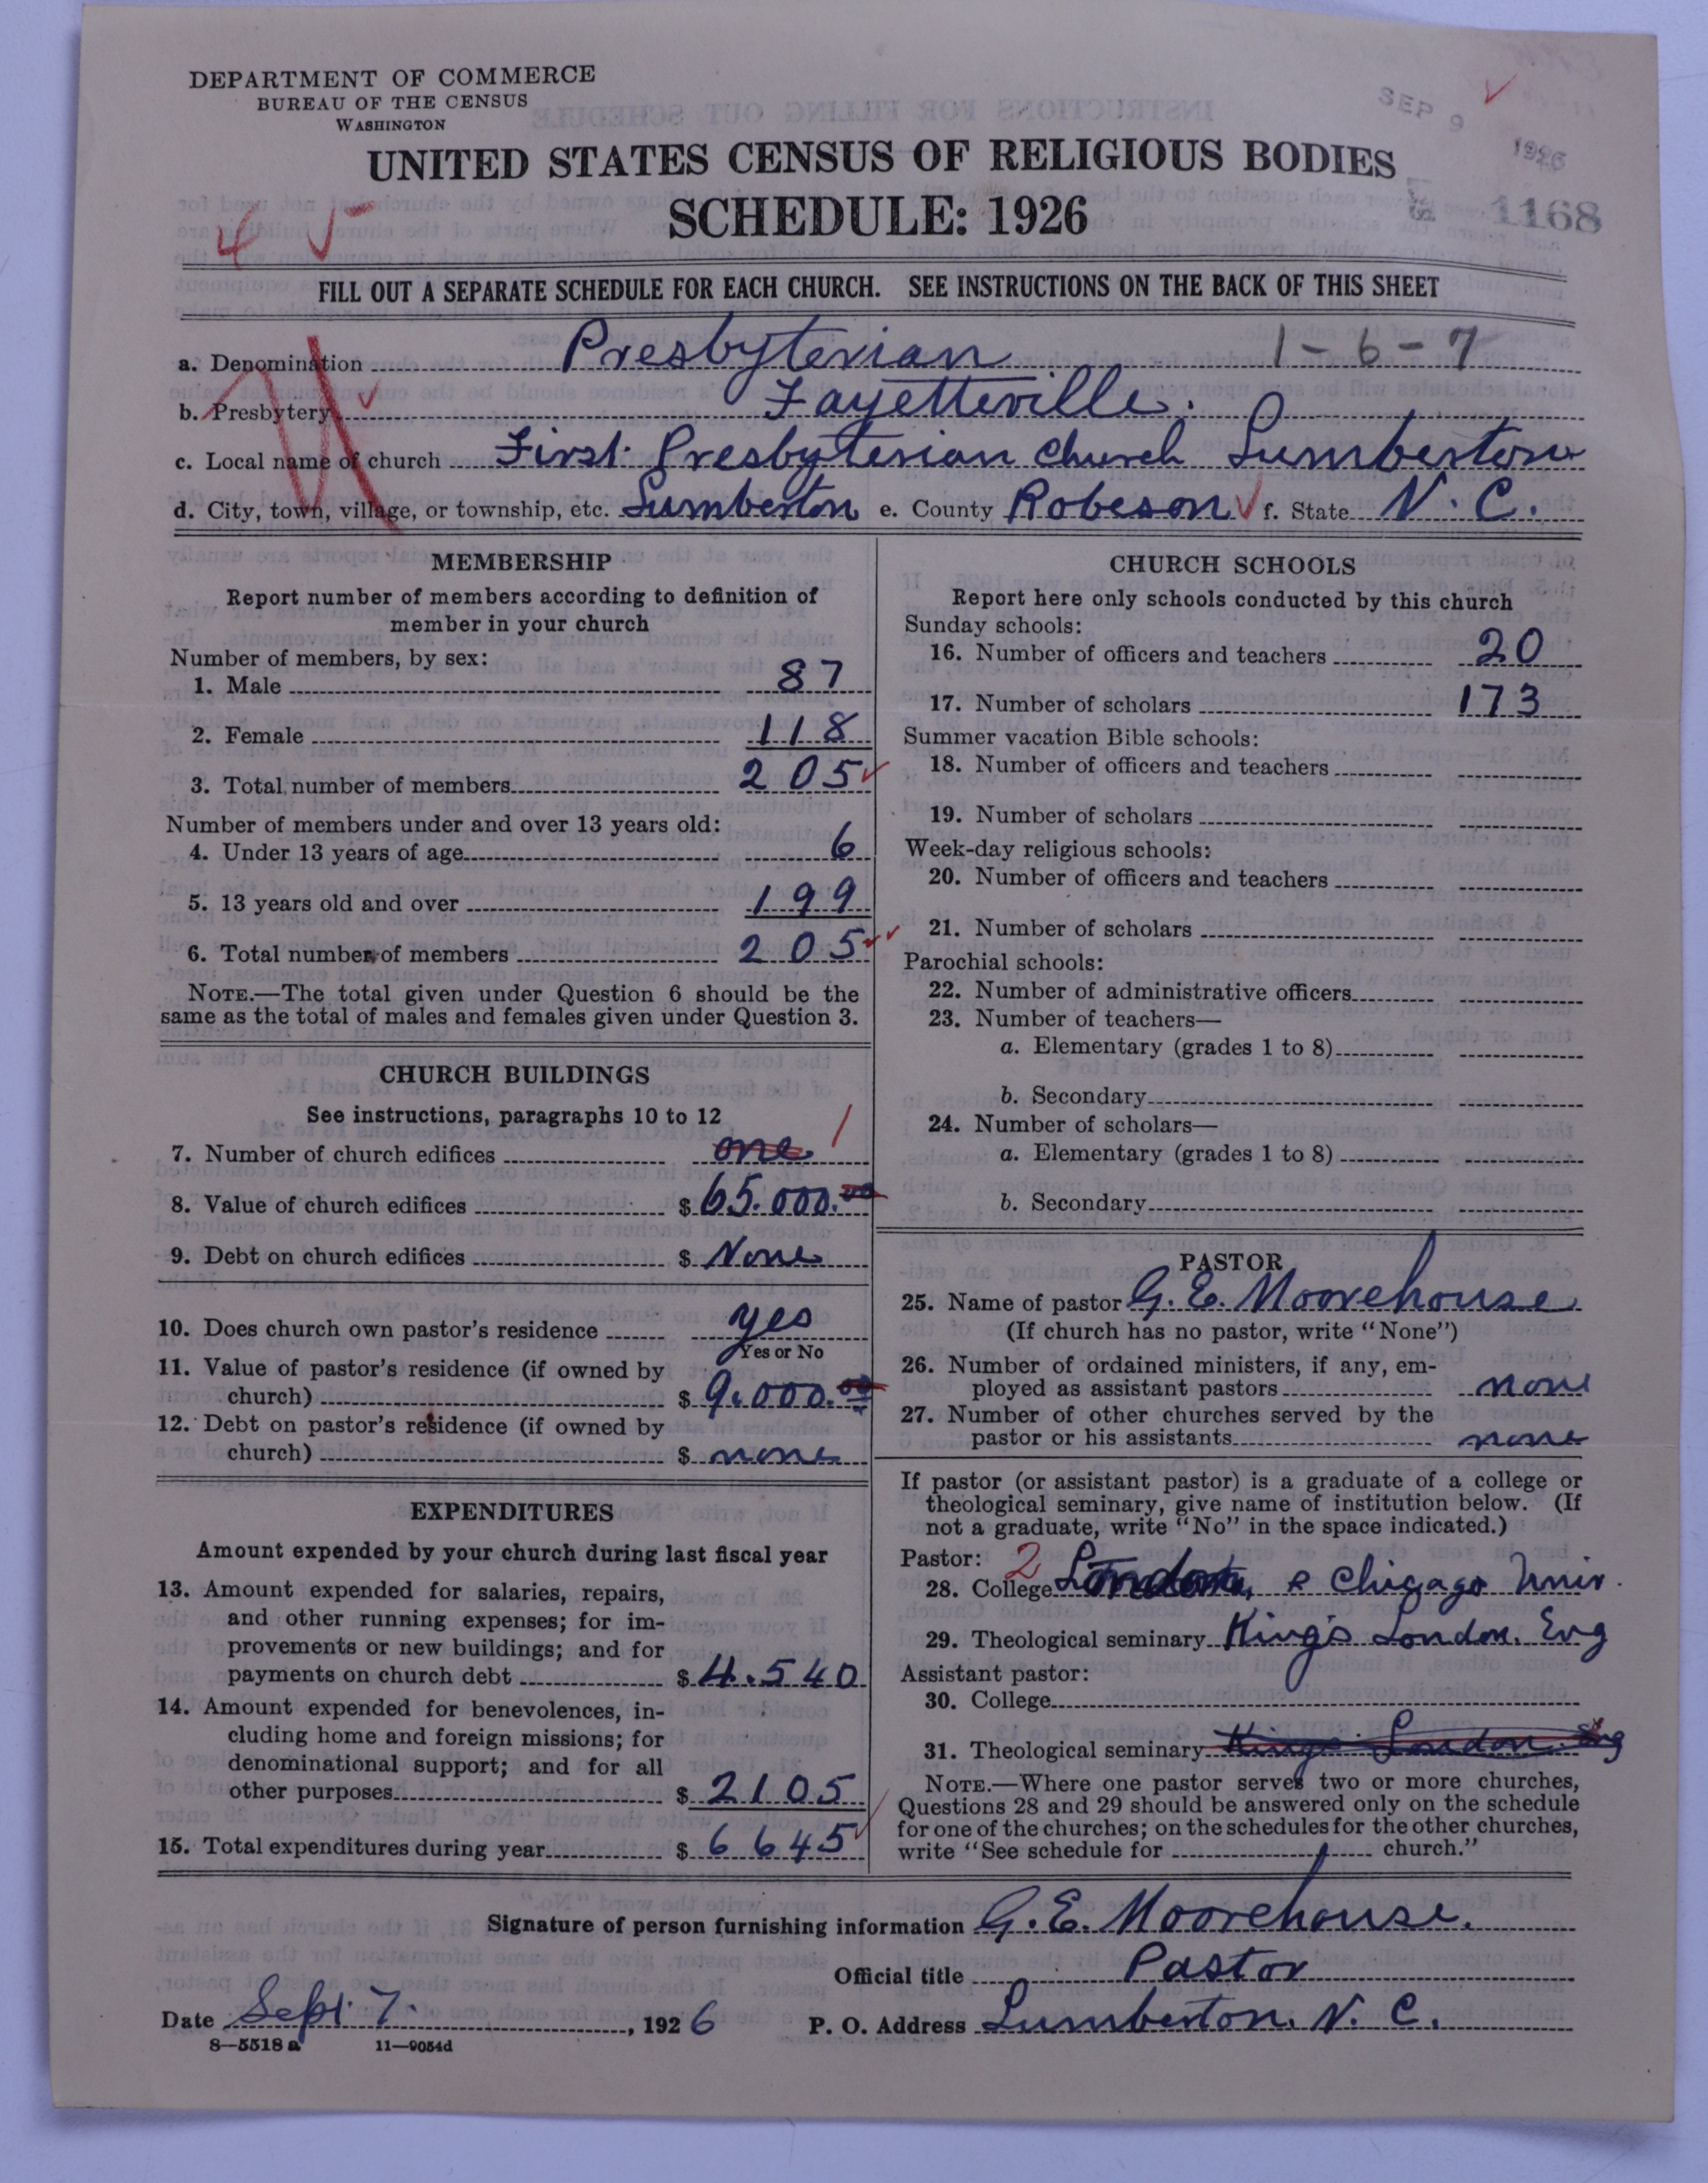 DEPARTMENT OF COMMERCE
BUREAU OF THE CENSUS
WASHINGTON
SEP 9 1926
UNITED STATES CENSUS OF RELIGIOUS BODIES
SCHEDULE: 1926
1168
4
FILL OUT A SEPARATE SCHEDULE FOR EACH CHURCH. SEE INSTRUCTIONS ON THE BACK OF THIS SHEET
a. Denomination Presbyterian 1-6-7
b. Presbytery Fayetteville.
c. Local name of church First Presbyterian Church Lumberton
d. City, town, village, or township, etc. Lumberton e. County Robeson f. State N. C.
MEMBERSHIP
Report number of members according to definition of
member in your church
Number of members, by sex:
1. Male 87
2. Female 118
3. Total number of members 205
Number of members under and over 13 years old:
4. Under 13 years of age 6
5. 13 years old and over 199
6. Total number of members 205
NOTE.—The total given under Question 6 should be the
same as the total of males and females given under Question 3.
CHURCH BUILDINGS
See instructions, paragraphs 10 to 12
7. Number of church edifices one 1
8. Value of church edifices $ 65.000.00
9. Debt on church edifices $ None
10. Does church own pastor's residence yes
Yes or No
11. Value of pastor's residence (if owned by
church) $ 9.000.00
12. Debt on pastor's residence (if owned by
church) $ none
EXPENDITURES
Amount expended by your church during last fiscal year
13. Amount expended for salaries, repairs,
and other running expenses; for im-
provements or new buildings; and for
payments on church debt $ 4.540
14. Amount expended for benevolences, in-
cluding home and foreign missions; for
denominational support; and for all
other purposes $ 2105
15. Total expenditures during year $ 6645
CHURCH SCHOOLS
Report here only schools conducted by this church
Sunday schools:
16. Number of officers and teachers 20
17. Number of scholars 173
Summer vacation Bible schools:
18. Number of officers and teachers
19. Number of scholars
Week-day religious schools:
20. Number of officers and teachers
21. Number of scholars
Parochial schools:
22. Number of administrative officers
23. Number of teachers—
a. Elementary (grades 1 to 8)
b. Secondary
24. Number of scholars—
a. Elementary (grades 1 to 8)
b. Secondary
PASTOR
25. Name of pastor G. E. Moorehouse
(If church has no pastor, write "None")
26. Number of ordained ministers, if any, em-
ployed as assistant pastors none
27. Number of other churches served by the
pastor or his assistants none
If pastor (or assistant pastor) is a graduate of a college or
theological seminary, give name of institution below. (If
not a graduate, write "No" in the space indicated.)
Pastor: 2
28. College London, & Chicago Univ.
29. Theological seminary King's London. Eng
Assistant pastor:
30. College
31. Theological seminary Kings London. Eng
NOTE.—Where one pastor serves two or more churches,
Questions 28 and 29 should be answered only on the schedule
for one of the churches; on the schedules for the other churches,
write "See schedule for church."
Signature of person furnishing information G. E. Moorehouse.
Official title Pastor
Date Sept 7. , 1926 P. O. Address Lumberton. N. C.
8—5518 a 11—9054d